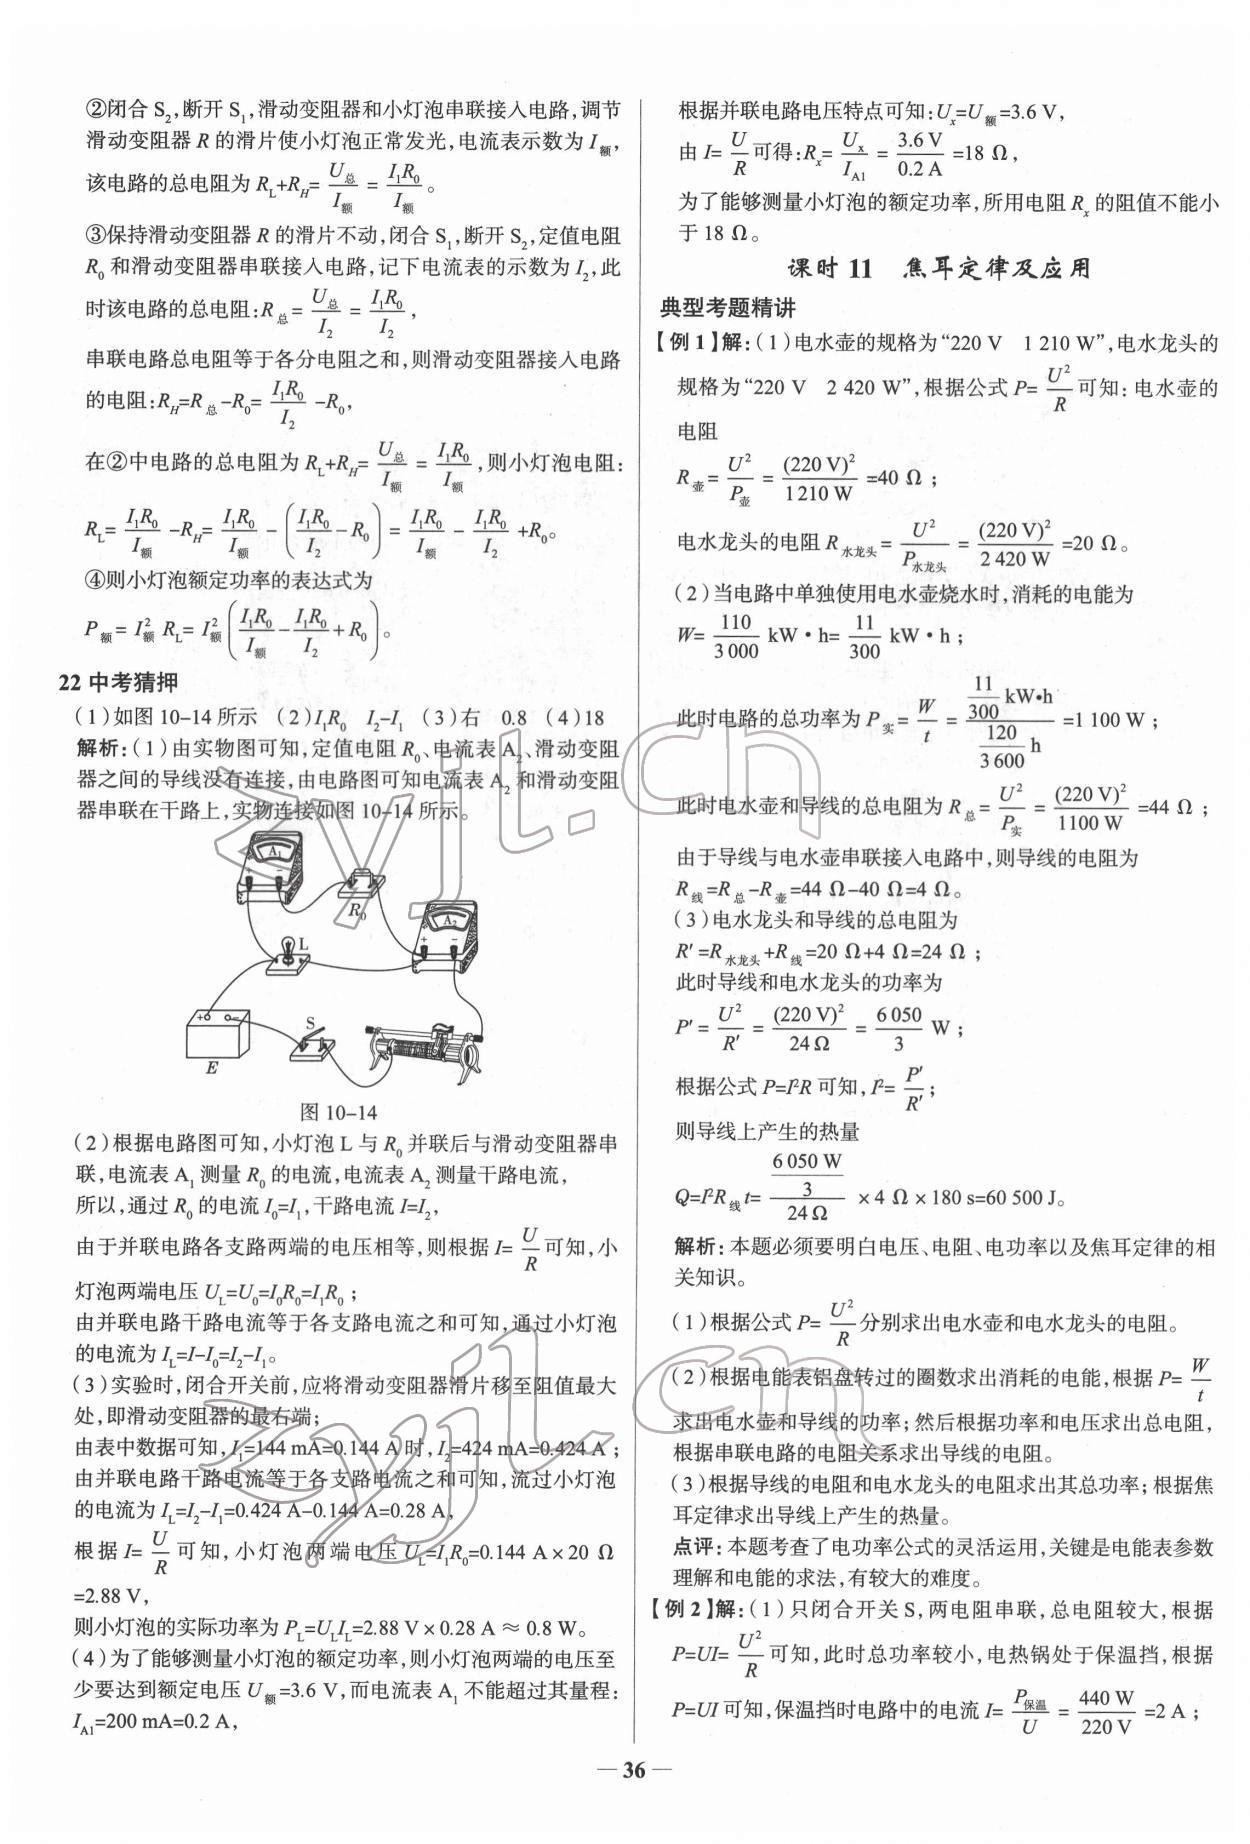 ②闭合 S₂,断开 S₁,滑动变阻器和小灯泡串联接入电路,调节
滑动变阻器 R 的滑片使小灯泡正常发光,电流表示数为 I额,
该电路的总电阻为 R_L+R_H=U总/I额=I₁R₀/I额。
③保持滑动变阻器 R 的滑片不动,闭合 S₁,断开 S₂,定值电阻
R₀ 和滑动变阻器串联接入电路,记下电流表的示数为 I₂,此
时该电路的总电阻:R总=U总/I₂=I₁R₀/I₂,
串联电路总电阻等于各分电阻之和,则滑动变阻器接入电路
的电阻:R_H=R总-R₀=I₁R₀/I₂-R₀,
在②中电路的总电阻为 R_L+R_H=U总/I额=I₁R₀/I额,则小灯泡电阻:
R_L=I₁R₀/I额-R_H=I₁R₀/I额-(I₁R₀/I₂-R₀)=I₁R₀/I额-I₁R₀/I₂+R₀。
④则小灯泡额定功率的表达式为
P额=I²额 R_L=I²额(I₁R₀/I额-I₁R₀/I₂+R₀)。
22 中考猜押
(1)如图 10-14 所示 (2)I₁R₀ I₂-I₁ (3)右 0.8 (4)18
解析:(1)由实物图可知,定值电阻 R₀、电流表 A₂、滑动变阻
器之间的导线没有连接,由电路图可知电流表 A₂ 和滑动变阻
器串联在干路上,实物连接如图 10-14 所示。
A₁
R₀
A₂
L
S
E
图 10-14
(2)根据电路图可知,小灯泡 L 与 R₀ 并联后与滑动变阻器串
联,电流表 A₁ 测量 R₀ 的电流,电流表 A₂ 测量干路电流,
所以,通过 R₀ 的电流 I₀=I₁,干路电流 I=I₂,
由于并联电路各支路两端的电压相等,则根据 I=U/R 可知,小
灯泡两端电压 U_L=U₀=I₀R₀=I₁R₀;
由并联电路干路电流等于各支路电流之和可知,通过小灯泡
的电流为 I_L=I-I₀=I₂-I₁。
(3)实验时,闭合开关前,应将滑动变阻器滑片移至阻值最大
处,即滑动变阻器的最右端;
由表中数据可知,I₁=144 mA=0.144 A时,I₂=424 mA=0.424 A;
由并联电路干路电流等于各支路电流之和可知,流过小灯泡
的电流为 I_L=I₂-I₁=0.424 A-0.144 A=0.28 A,
根据 I=U/R 可知,小灯泡两端电压 U_L=I₁R₀=0.144 A×20 Ω
=2.88 V,
则小灯泡的实际功率为 P_L=U_LI_L=2.88 V×0.28 A≈0.8 W。
(4)为了能够测量小灯泡的额定功率,则小灯泡两端的电压至
少要达到额定电压 U额=3.6 V,而电流表 A₁ 不能超过其量程:
I_A1=200 mA=0.2 A,
根据并联电路电压特点可知:Uₓ=U额=3.6 V,
由 I=U/R 可得:Rₓ=Uₓ/I_A1=3.6 V/0.2 A=18 Ω,
为了能够测量小灯泡的额定功率,所用电阻 Rₓ 的阻值不能小
于 18 Ω。
课时 11 焦耳定律及应用
典型考题精讲
【例 1】解:(1)电水壶的规格为“220 V 1 210 W”,电水龙头的
规格为“220 V 2 420 W”,根据公式 P=U²/R 可知:电水壶的
电阻
R壶=U²/P壶=(220 V)²/1210 W=40 Ω;
电水龙头的电阻 R水龙头=U²/P水龙头=(220 V)²/2 420 W=20 Ω。
(2)当电路中单独使用电水壶烧水时,消耗的电能为
W=110/3 000 kW·h=11/300 kW·h;
此时电路的总功率为 P实=W/t=(11/300 kW·h)/(120/3 600 h)=1 100 W;
此时电水壶和导线的总电阻为 R总=U²/P实=(220 V)²/1100 W=44 Ω;
由于导线与电水壶串联接入电路中,则导线的电阻为
R线=R总-R壶=44 Ω-40 Ω=4 Ω。
(3)电水龙头和导线的总电阻为
R′=R水龙头+R线=20 Ω+4 Ω=24 Ω;
此时导线和电水龙头的功率为
P′=U²/R′=(220 V)²/24 Ω=6 050/3 W;
根据公式 P=I²R 可知,I²=P′/R′;
则导线上产生的热量
Q=I²R线t=(6 050 W/3)/24 Ω×4 Ω×180 s=60 500 J。
解析:本题必须要明白电压、电阻、电功率以及焦耳定律的相
关知识。
(1)根据公式 P=U²/R 分别求出电水壶和电水龙头的电阻。
(2)根据电能表铝盘转过的圈数求出消耗的电能,根据 P=W/t
求出电水壶和导线的功率;然后根据功率和电压求出总电阻,
根据串联电路的电阻关系求出导线的电阻。
(3)根据导线的电阻和电水龙头的电阻求出其总功率;根据焦
耳定律求出导线上产生的热量。
点评:本题考查了电功率公式的灵活运用,关键是电能表参数
理解和电能的求法,有较大的难度。
【例 2】解:(1)只闭合开关 S,两电阻串联,总电阻较大,根据
P=UI=U²/R 可知,此时总功率较小,电热锅处于保温挡,根据
P=UI 可知,保温挡时电路中的电流 I=P保温/U=440 W/220 V=2 A;
— 36 —
zyjl.cn
zyjl.cn